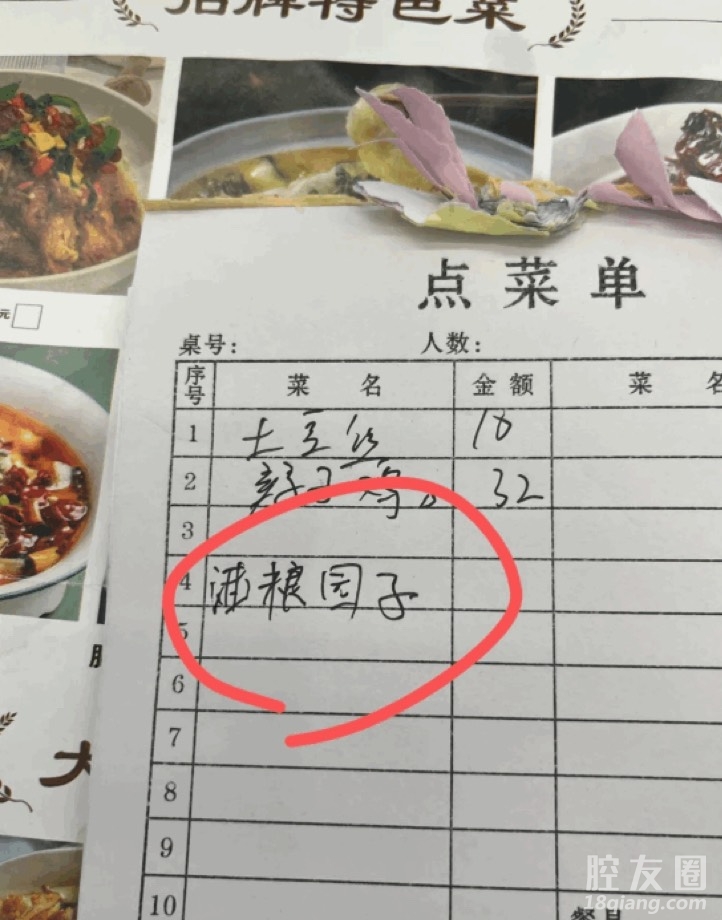 招牌特色菜
元
点菜单
桌号： 人数：
序号 菜名 金额 菜名
1 土豆丝 18
2 辣子鸡 32
3
4 酒粮园子
5
6
7
8
9
10
大
腔友圈
18qiang.com